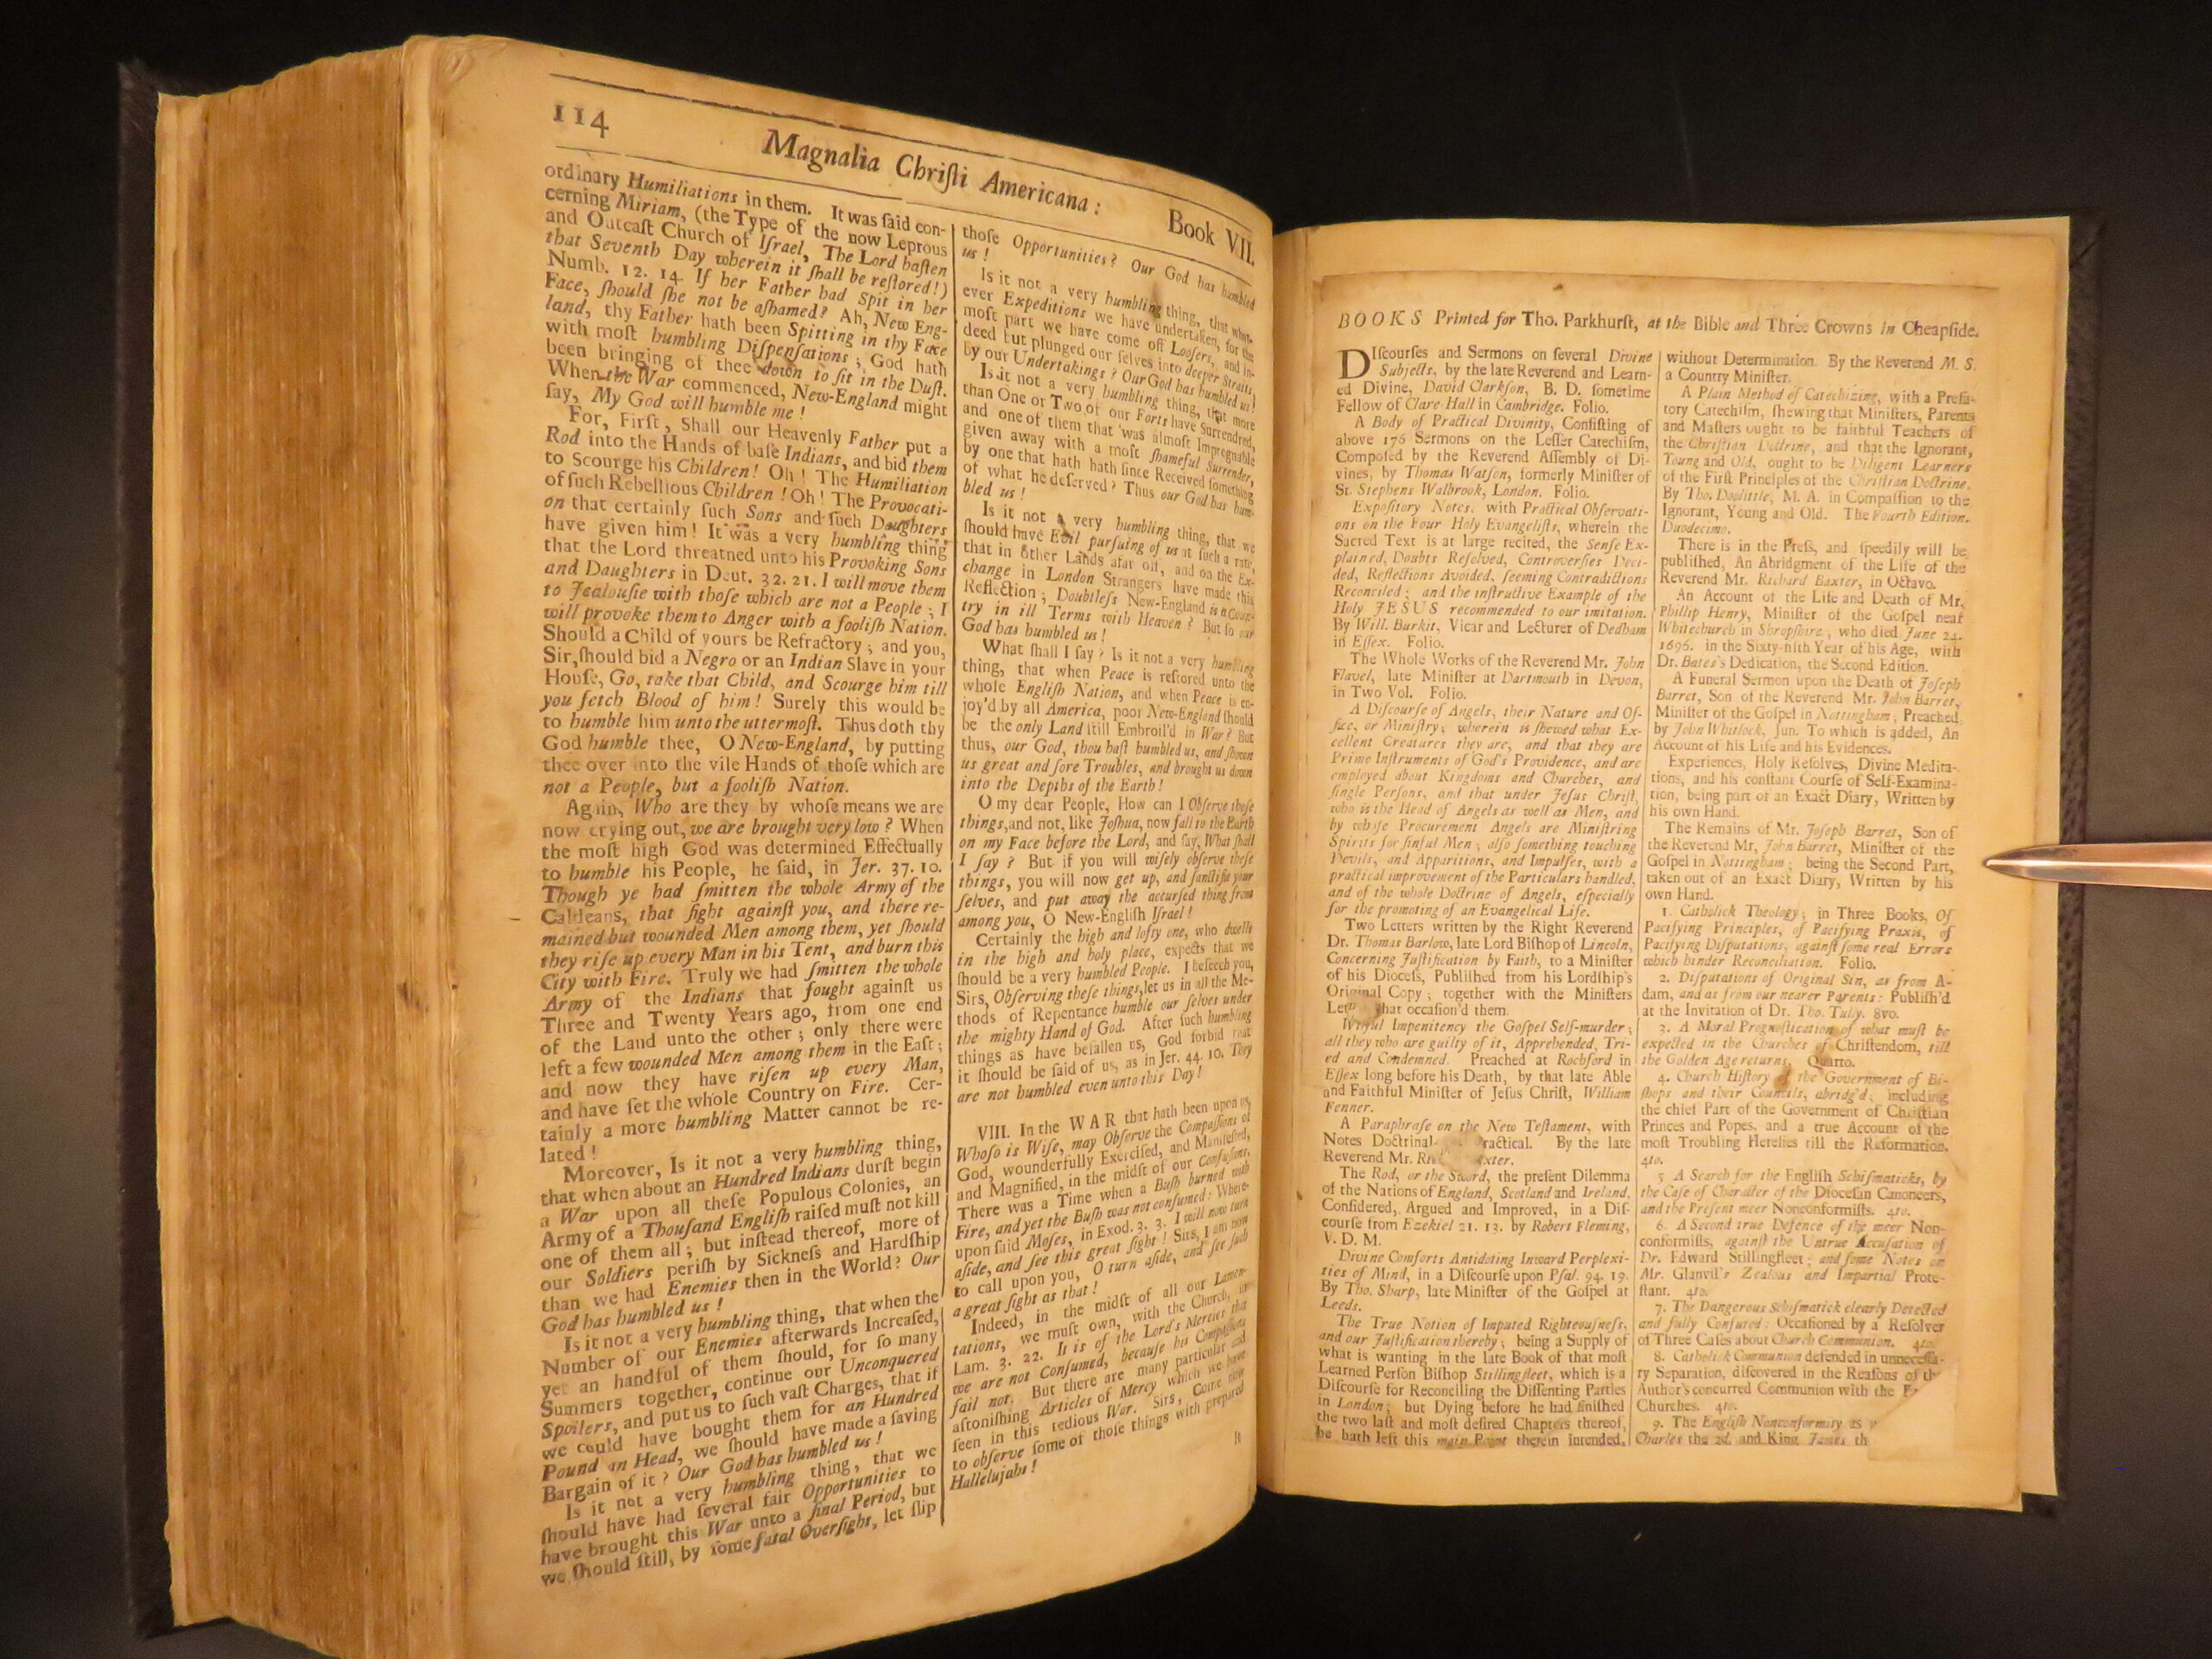 114
Magnalia Chriſti Americana:
Book VII.
ordinary Humiliations in them. It was ſaid con-
cerning Miriam, (the Type of the now Leprous
and Outcaſt Church of Iſrael, The Lord haſten
that Seventh Day wherein it ſhall be reſtored!)
Numb. 12. 14. If her Father had Spit in her
Face, ſhould ſhe not be aſhamed? Ah, New Eng-
land, thy Father hath been Spitting in thy Face
with moſt humbling Diſpenſations; God hath
been bringing of thee down to ſit in the Duſt.
When the War commenced, New-England might
ſay, My God will humble me!
For, Firſt, Shall our Heavenly Father put a
Rod into the Hands of baſe Indians, and bid them
to Scourge his Children! Oh! The Humiliation
of ſuch Rebellious Children! Oh! The Provocati-
on that certainly ſuch Sons and ſuch Daughters
have given him! It was a very humbling thing
that the Lord threatned unto his Provoking Sons
and Daughters in Deut. 32. 21. I will move them
to Jealouſie with thoſe which are not a People; I
will provoke them to Anger with a fooliſh Nation.
Should a Child of yours be Refractory; and you,
Sir, ſhould bid a Negro or an Indian Slave in your
Houſe, Go, take that Child, and Scourge him till
you fetch Blood of him! Surely this would be
to humble him unto the uttermoſt. Thus doth thy
God humble thee, O New-England, by putting
thee over into the vile Hands of thoſe which are
not a People, but a fooliſh Nation.
Again, Who are they by whoſe means we are
now crying out, we are brought very low? When
the moſt high God was determined Effectually
to humble his People, he ſaid, in Jer. 37. 10.
Though ye had ſmitten the whole Army of the
Caldeans, that fight againſt you, and there re-
mained but wounded Men among them, yet ſhould
they riſe up every Man in his Tent, and burn this
City with Fire. Truly we had ſmitten the whole
Army of the Indians that fought againſt us
Three and Twenty Years ago, from one end
of the Land unto the other; only there were
left a few wounded Men among them in the Eaſt;
and now they have riſen up every Man,
and have ſet the whole Country on Fire. Cer-
tainly a more humbling Matter cannot be re-
lated!
Moreover, Is it not a very humbling thing,
that when about an Hundred Indians durſt begin
a War upon all theſe Populous Colonies, an
Army of a Thouſand Engliſh raiſed muſt not kill
one of them all; but inſtead thereof, more of
our Soldiers periſh by Sickneſs and Hardſhip
than we had Enemies then in the World? Our
God has humbled us!
Is it not a very humbling thing, that when the
Number of our Enemies afterwards Increaſed,
yet an handful of them ſhould, for ſo many
Summers together, continue our Unconquered
Spoilers, and put us to ſuch vaſt Charges, that if
we could have bought them for an Hundred
Pound an Head, we ſhould have made a ſaving
Bargain of it? Our God has humbled us!
Is it not a very humbling thing, that we
ſhould have had ſeveral fair Opportunities to
have brought this War unto a final Period, but
we ſhould ſtill, by ſome fatal Overſight, let ſlip
thoſe Opportunities? Our God has humbled
us!
Is it not a very humbling thing, that what-
ever Expeditions we have undertaken, for the
moſt part we have come off Looſers, and in-
deed but plunged our ſelves into deeper Straits,
by our Undertakings? Our God has humbled us!
Is it not a very humbling thing, that more
than One or Two of our Forts have Surrendred,
and one of them that was almoſt Impregnable
given away with a moſt ſhameful Surrender,
by one that hath hath ſince Received ſomething
of what he deſerved? Thus our God has hum-
bled us!
Is it not a very humbling thing, that we
ſhould have Evil purſuing of us at ſuch a rate,
that in other Lands afar off, and on the Ex-
change in London Strangers have made this
Reflection; Doubtleſs New-England is a Coun-
try in ill Terms with Heaven? But ſo our
God has humbled us!
What ſhall I ſay? Is it not a very humbling
thing, that when Peace is reſtored unto the
whole Engliſh Nation, and when Peace is en-
joy'd by all America, poor New-England ſhould
be the only Land ſtill Embroil'd in War? But
thus, our God, thou haſt humbled us, and ſhown
us great and ſore Troubles, and brought us down
into the Depths of the Earth!
O my dear People, How can I Obſerve theſe
things, and not, like Joſhua, now fall to the Earth
on my Face before the Lord, and ſay, What ſhall
I ſay? But if you will wiſely obſerve theſe
things, you will now get up, and ſanctifie your
ſelves, and put away the accurſed thing from
among you, O New-Engliſh Iſrael!
Certainly the high and lofty one, who dwells
in the high and holy place, expects that we
ſhould be a very humbled People. I beſeech you,
Sirs, Obſerving theſe things, let us in all the Me-
thods of Repentance humble our ſelves under
the mighty Hand of God. After ſuch humbling
things as have befallen us, God forbid that
it ſhould be ſaid of us, as in Jer. 44. 10. They
are not humbled even unto this Day!
VIII. In the WAR that hath been upon us,
Whoſo is Wiſe, may Obſerve the Compaſſions of
God, wounderfully Exerciſed, and Manifeſted,
and Magnified, in the midſt of our Confuſions.
There was a Time when a Buſh burned with
Fire, and yet the Buſh was not conſumed: Where-
upon ſaid Moſes, in Exod. 3. 3. I will now turn
aſide, and ſee this great ſight! Sirs, I am now
to call upon you, O turn aſide, and ſee ſuch
a great ſight as that!
Indeed, in the midſt of all our Lamen-
tations, we muſt own, with the Church, in
Lam. 3. 22. It is of the Lord's Mercies that
we are not Conſumed, becauſe his Compaſſions
fail not. But there are many particular and
aſtoniſhing Articles of Mercy which we have
ſeen in this tedious War. Sirs, Come now
to obſerve ſome of thoſe things with prepared
Hallelujahs!
It
BOOKS Printed for Tho. Parkhurſt, at the Bible and Three Crowns in Cheapſide.
DIſcourſes and Sermons on ſeveral Divine
Subjects, by the late Reverend and Learn-
ed Divine, David Clarkſon, B. D. ſometime
Fellow of Clare Hall in Cambridge. Folio.
A Body of Practical Divinity, Conſiſting of
above 176 Sermons on the Leſſer Catechiſm,
Compoſed by the Reverend Aſſembly of Di-
vines, by Thomas Watſon, formerly Miniſter of
St. Stephens Walbrook, London. Folio.
Expoſitory Notes, with Practical Obſervati-
ons on the Four Holy Evangeliſts, wherein the
Sacred Text is at large recited, the Senſe Ex-
plained, Doubts Reſolved, Controverſies Deci-
ded, Reflections Avoided, ſeeming Contradictions
Reconciled; and the inſtructive Example of the
Holy JESUS recommended to our imitation.
By Will. Burkit, Vicar and Lecturer of Dedham
in Eſſex. Folio.
The Whole Works of the Reverend Mr. John
Flavel, late Miniſter at Dartmouth in Devon,
in Two Vol. Folio.
A Diſcourſe of Angels, their Nature and Of-
fice, or Miniſtry; wherein is ſhewed what Ex-
cellent Creatures they are, and that they are
Prime Inſtruments of God's Providence, and are
employed about Kingdoms and Churches, and
ſingle Perſons, and that under Jeſus Chriſt,
who is the Head of Angels as well as Men, and
by whoſe Procurement Angels are Miniſtring
Spirits for ſinful Men; alſo ſomething touching
Devils, and Apparitions, and Impulſes, with a
practical improvement of the Particulars handled,
and of the whole Doctrine of Angels, eſpecially
for the promoting of an Evangelical Life.
Two Letters written by the Right Reverend
Dr. Thomas Barlow, late Lord Biſhop of Lincoln,
Concerning Juſtification by Faith, to a Miniſter
of his Dioceſs, Publiſhed from his Lordſhip's
Original Copy; together with the Miniſters
Let hat occaſion'd them.
Wilful Impenitency the Goſpel Self-murder;
all they who are guilty of it, Apprehended, Tri-
ed and Condemned. Preached at Rochford in
Eſſex long before his Death, by that late Able
and Faithful Miniſter of Jeſus Chriſt, William
Fenner.
A Paraphraſe on the New Teſtament, with
Notes Doctrinal ractical. By the late
Reverend Mr. Ri xter.
The Rod, or the Sword, the preſent Dilemma
of the Nations of England, Scotland and Ireland,
Conſidered, Argued and Improved, in a Diſ-
courſe from Ezekiel 21. 13. by Robert Fleming,
V. D. M.
Divine Comforts Antidoting Inward Perplexi-
ties of Mind, in a Diſcourſe upon Pſal. 94. 19.
By Tho. Sharp, late Miniſter of the Goſpel at
Leeds.
The True Notion of Imputed Righteouſneſs,
and our Juſtification thereby; being a Supply of
what is wanting in the late Book of that moſt
Learned Perſon Biſhop Stillingfleet, which is a
Diſcourſe for Reconciling the Diſſenting Parties
in London; but Dying before he had finiſhed
the two laſt and moſt deſired Chapters thereof,
he hath left this main Point therein intended,
without Determination. By the Reverend M. S.
a Country Miniſter.
A Plain Method of Catechizing, with a Prefa-
tory Catechiſm, ſhewing that Miniſters, Parents
and Maſters ought to be faithful Teachers of
the Chriſtian Doctrine, and that the Ignorant,
Young and Old, ought to be Diligent Learners
of the Firſt Principles of the Chriſtian Doctrine.
By Tho. Doolittle, M. A. in Compaſſion to the
Ignorant, Young and Old. The Fourth Edition.
Duodecimo.
There is in the Preſs, and ſpeedily will be
publiſhed, An Abridgment of the Life of the
Reverend Mr. Richard Baxter, in Octavo.
An Account of the Life and Death of Mr.
Phillip Henry, Miniſter of the Goſpel near
Whitechurch in Shropſhire, who died June 24.
1696. in the Sixty-fifth Year of his Age, with
Dr. Bates's Dedication, the Second Edition.
A Funeral Sermon upon the Death of Joſeph
Barret, Son of the Reverend Mr. John Barret,
Miniſter of the Goſpel in Nottingham; Preached
by John Whitlock, Jun. To which is added, An
Account of his Life and his Evidences.
Experiences, Holy Reſolves, Divine Medita-
tions, and his conſtant Courſe of Self-Examina-
tion, being part of an Exact Diary, Written by
his own Hand.
The Remains of Mr. Joſeph Barret, Son of
the Reverend Mr. John Barret, Miniſter of the
Goſpel in Nottingham; being the Second Part,
taken out of an Exact Diary, Written by his
own Hand.
1. Catholick Theology; in Three Books, Of
Pacifying Principles, of Pacifying Praxis, of
Pacifying Diſputations, againſt ſome real Errors
which hinder Reconciliation. Folio.
2. Diſputations of Original Sin, as from A-
dam, and as from our nearer Parents: Publiſh'd
at the Invitation of Dr. Tho. Tully. 8vo.
3. A Moral Prognoſtication of what muſt be
expected in the Churches of Chriſtendom, till
the Golden Age returns, Quarto.
4. Church Hiſtory of the Government of Bi-
ſhops and their Councils, abridg'd; including
the chief Part of the Government of Chriſtian
Princes and Popes, and a true Account of the
moſt Troubling Hereſies till the Reformation.
4to.
5 A Search for the Engliſh Schiſmaticks, by
the Caſe of Character of the Dioceſan Canoneers,
and the Preſent meer Nonconformiſts. 4to.
6. A Second true Defence of the meer Non-
conformiſts, againſt the Untrue Accuſation of
Dr. Edward Stillingfleet; and ſome Notes on
Mr. Glanvil's Zealous and Impartial Prote-
ſtant. 4to.
7. The Dangerous Schiſmatick clearly Detected
and fully Confuted: Occaſioned by a Reſolver
of Three Caſes about Church Communion. 4to.
8. Catholick Communion defended in unneceſſa-
ry Separation, diſcovered in the Reaſons of the
Author's concurred Communion with the
Churches. 4to.
9. The Engliſh Nonconformity as
Charles the 2d. and King James th